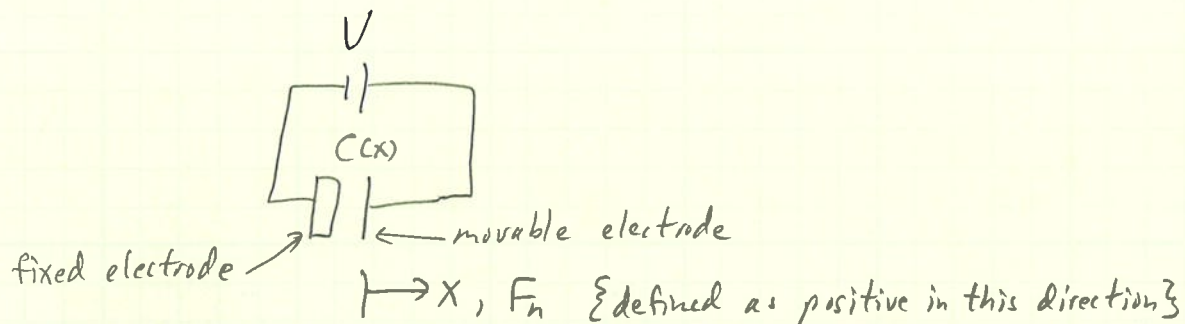 V
C(x)
movable electrode
fixed electrode
x, Fn {defined as positive in this direction}